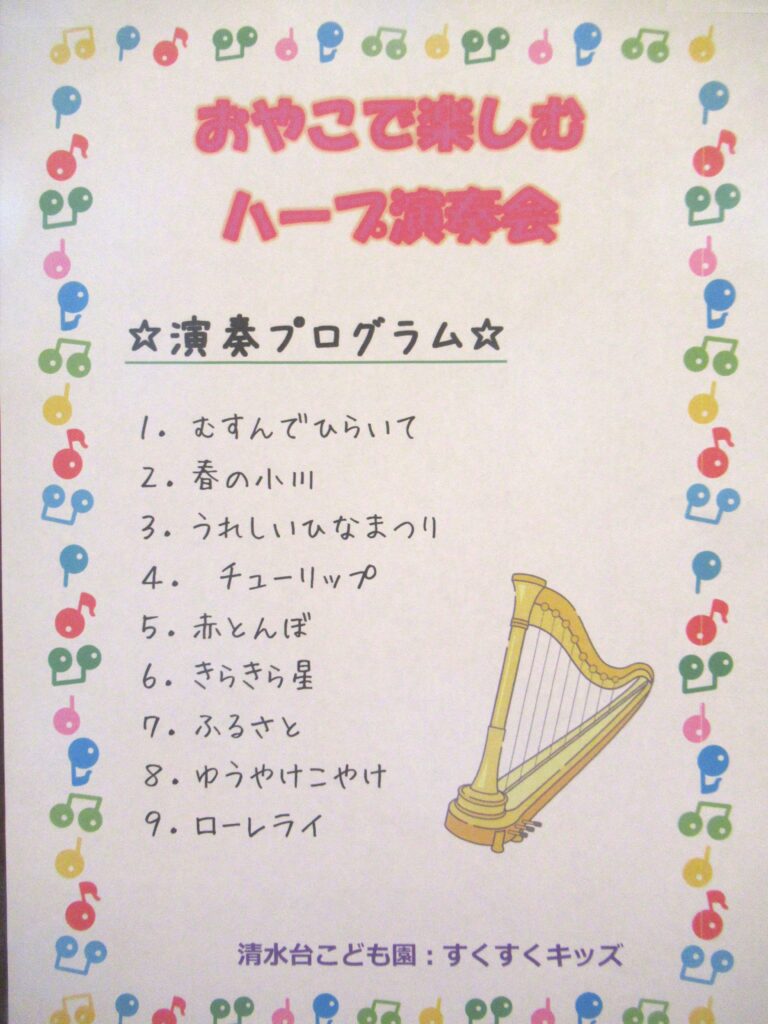 おやこで楽しむ
ハープ演奏会
☆演奏プログラム☆
1. むすんでひらいて
2. 春の小川
3. うれしいひなまつり
4. チューリップ
5. 赤とんぼ
6. きらきら星
7. ふるさと
8. ゆうやけこやけ
9. ローレライ
清水台こども園：すくすくキッズ